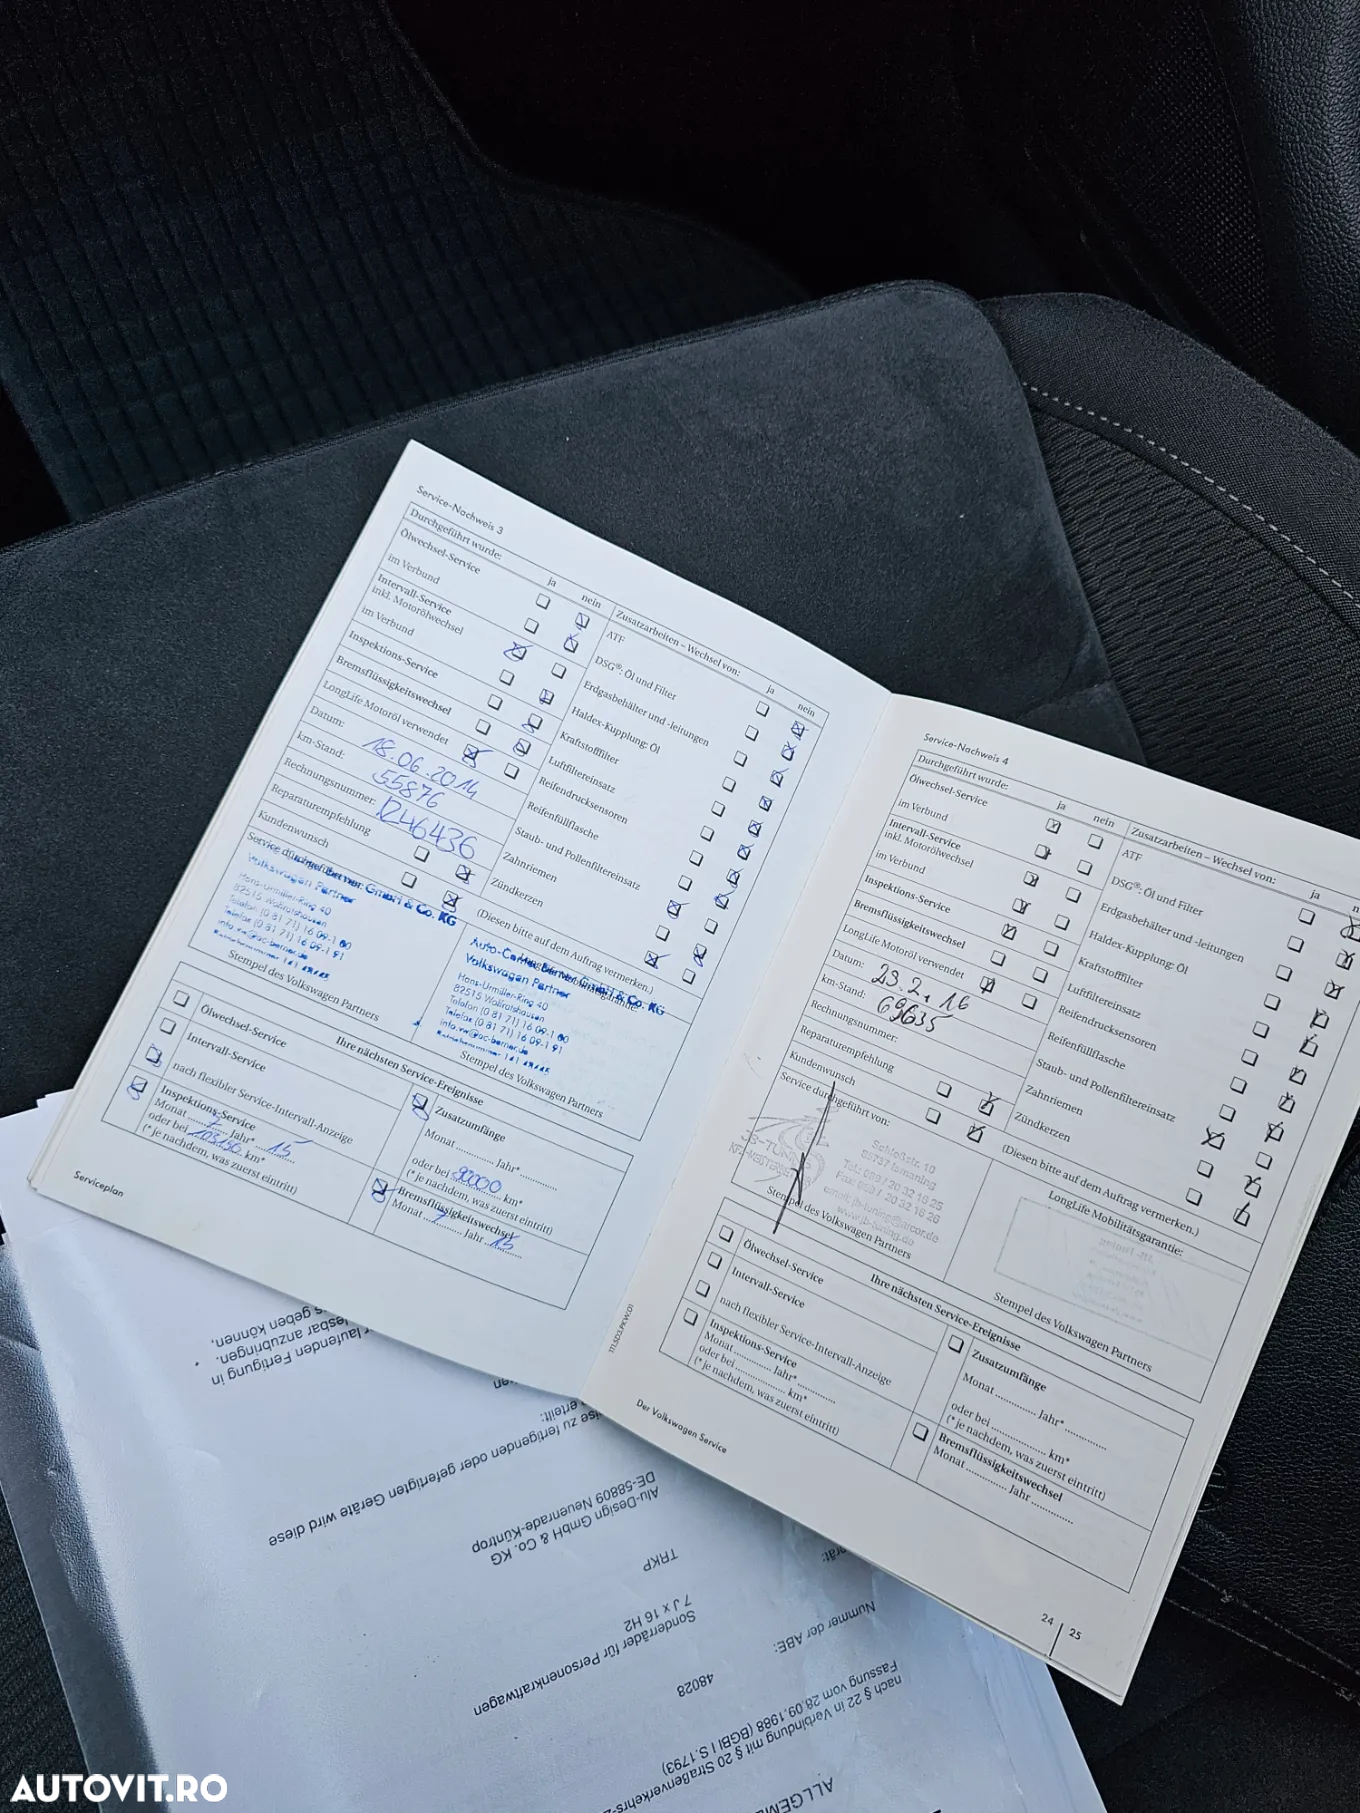 Service-Nachweis 3
Durchgeführt wurde:
ja
nein
Ölwechsel-Service
im Verbund
Intervall-Service
inkl. Motorölwechsel
im Verbund
Inspektions-Service
Bremsflüssigkeitswechsel
LongLife Motoröl verwendet
Datum: 18.06.2014
km-Stand: 55876
Rechnungsnummer:
Reparaturempfehlung
Kundenwunsch
Service durchgeführt von:
GmbH & Co. KG
Volkswagen Partner
Hans-Urmiller-Ring 40
82515 Wolfratshausen
Telefon (0 81 71) 16 09-1 00
Telefax (0 81 71) 16 09-1 91
Stempel des Volkswagen Partners
Zusatzarbeiten – Wechsel von:
ja
nein
ATF
DSG®: Öl und Filter
Erdgasbehälter und -leitungen
Haldex-Kupplung: Öl
Kraftstofffilter
Luftfiltereinsatz
Reifendrucksensoren
Reifenfüllflasche
Staub- und Pollenfiltereinsatz
Zahnriemen
Zündkerzen
(Diesen bitte auf dem Auftrag vermerken.)
Auto-Center Berner GmbH & Co. KG
Volkswagen Partner
Hans-Urmiller-Ring 40
82515 Wolfratshausen
Telefon (0 81 71) 16 09-1 00
Telefax (0 81 71) 16 09-1 91
info.vw@ac-berner.de
Stempel des Volkswagen Partners
Ihre nächsten Service-Ereignisse
Ölwechsel-Service
Intervall-Service
nach flexibler Service-Intervall-Anzeige
Inspektions-Service
Monat 7 Jahr* 15
oder bei 103150 km*
(*je nachdem, was zuerst eintritt)
Zusatzumfänge
Monat ........... Jahr* ...........
oder bei 90000 km*
(*je nachdem, was zuerst eintritt)
Bremsflüssigkeitswechsel
Monat 7 Jahr 15
Serviceplan
Service-Nachweis 4
Durchgeführt wurde:
ja
nein
Ölwechsel-Service
im Verbund
Intervall-Service
inkl. Motorölwechsel
im Verbund
Inspektions-Service
Bremsflüssigkeitswechsel
LongLife Motoröl verwendet
Datum: 23.2.16
km-Stand: 69635
Rechnungsnummer:
Reparaturempfehlung
Kundenwunsch
Service durchgeführt von:
Schloßstr. 10
85737 Ismaning
Tel.: 089 / 20 32 16 25
Fax: 089 / 20 32 16 26
email: jb-tuning@arcor.de
www.jb-tuning.de
Stempel des Volkswagen Partners
Zusatzarbeiten – Wechsel von:
ja
ATF
DSG®: Öl und Filter
Erdgasbehälter und -leitungen
Haldex-Kupplung: Öl
Kraftstofffilter
Luftfiltereinsatz
Reifendrucksensoren
Reifenfüllflasche
Staub- und Pollenfiltereinsatz
Zahnriemen
Zündkerzen
(Diesen bitte auf dem Auftrag vermerken.)
LongLife Mobilitätsgarantie:
Stempel des Volkswagen Partners
Ihre nächsten Service-Ereignisse
Ölwechsel-Service
Intervall-Service
nach flexibler Service-Intervall-Anzeige
Inspektions-Service
Monat ........... Jahr* ...........
oder bei ........... km*
(*je nachdem, was zuerst eintritt)
Zusatzumfänge
Monat ........... Jahr* ...........
oder bei ........... km*
(*je nachdem, was zuerst eintritt)
Bremsflüssigkeitswechsel
Monat ........... Jahr ...........
Der Volkswagen Service
24
25
ALLGEME
nach § 22 in Verbindung mit § 20 Straßenverkehrs-Z
Fassung vom 28.09.1988 (BGBl I S.1793)
Nummer der ABE:
48028
Sonderräder für Personenkraftwagen
7 J x 16 H2
TRKP
Alu-Design GmbH & Co. KG
DE-58809 Neuenrade-Küntrop
eise zu fertigenden oder gefertigten Geräte wird diese
erteilt:
r laufenden Fertigung in
lesbar anzubringen.
s geben können.
AUTOVIT.RO